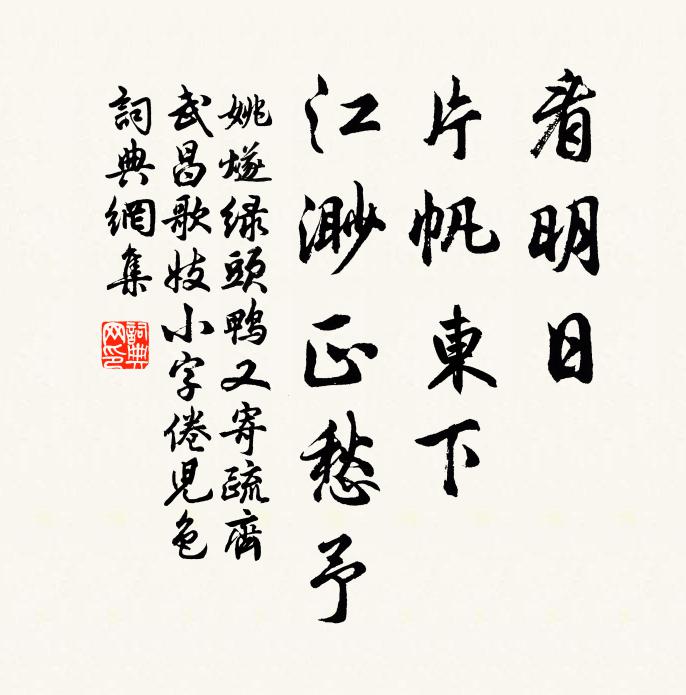 看明日
片帆東下
江渺正愁予
姚燧綠頭鴨又寄疏齋
武昌歌妓小字倦兒色
詞典網集
詞典网印